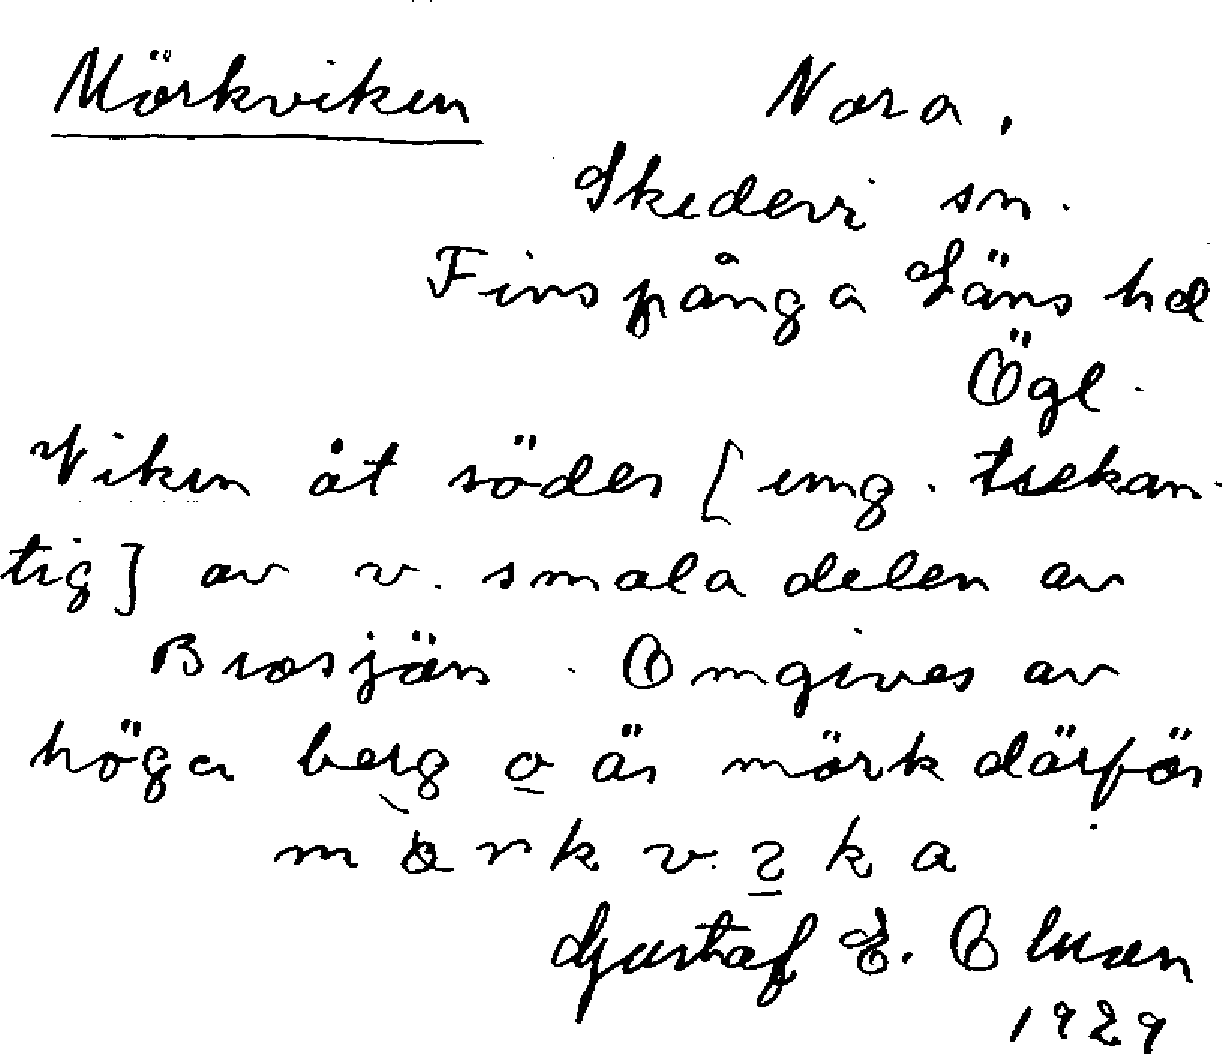 Mörkviken Nora,
Skedevi sn.
Finspånga Läns hd
Ögl.
Viken åt söder [ung. trekan-
tig] av v. smala delen av
Brosjön. Omgives av
höga berg o är mörk därför
Gustaf E. Olson
1929